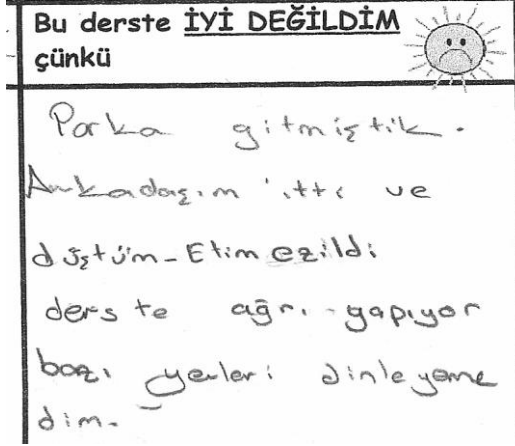 Bu derste İYİ DEĞİLDİM
çünkü
Parka gitmiştik.
Arkadaşım itti ve
düştüm-Etim ezildi
derste ağrı yapıyor
bazı yerleri dinleyeme
dim.